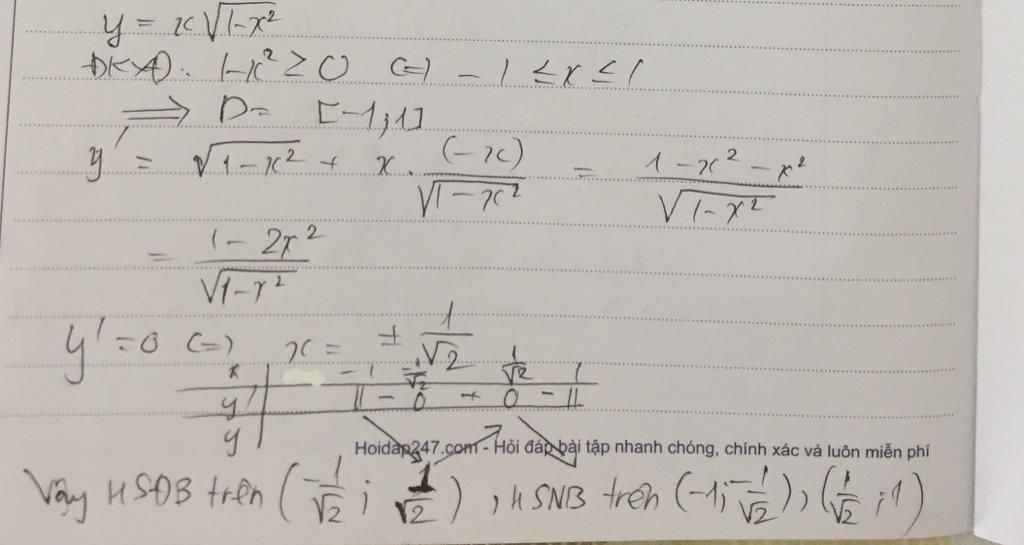 y = x√(1-x²)
ĐKXĐ: 1-x² ≥ 0 (=) -1 ≤ x ≤ 1
⟹ D = [-1;1]
y' = √(1-x²) + x . (-x)/√(1-x²) = (1-x²-x²)/√(1-x²)
= (1-2x²)/√(1-x²)
y' = 0 (=) x = ± 1/√2
x -1 -1/√2 1/√2 1
y' || - 0 + 0 - ||
y
Hoidap247.com - Hỏi đáp bài tập nhanh chóng, chính xác và luôn miễn phí
Vậy HSĐB trên (-1/√2 ; 1/√2), HSNB trên (-1; -1/√2), (1/√2 ; 1)